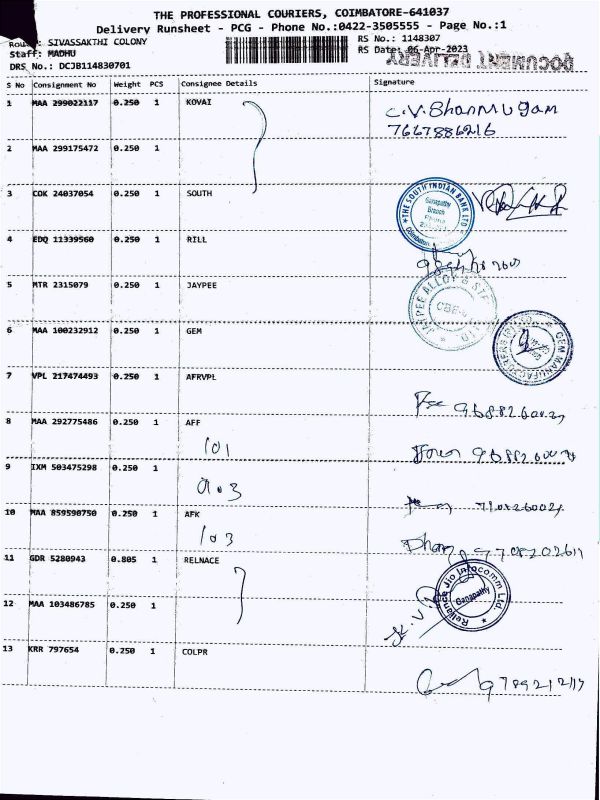 THE PROFESSIONAL COURIERS, COIMBATORE-641037
Delivery Runsheet - PCG - Phone No.:0422-3505555 - Page No.:1
Route: SIVASSAKTHI COLONY
RS No.: 1148307
Staff: MADHU
RS Date: 06-Apr-2023
DOCUMENT DELIVERY
DRS No.: DCJB114830701
S No Consignment No Weight PCS Consignee Details Signature
1 MAA 299022117 0.250 1 KOVAI C.V.Shanmugam
7667886216
2 MAA 299175472 0.250 1
3 COK 24037054 0.250 1 SOUTH
THE SOUTH INDIAN BANK LTD
Ganapathy
Branch
Coimbatore
4 EDQ 11339560 0.250 1 RILL
5 MTR 2315079 0.250 1 JAYPEE
CBE
6 MAA 100232912 0.250 1 GEM
GEM MANUFACTURERS
7 VPL 217474493 0.250 1 AFRVPL
8 MAA 292775486 0.250 1 AFF
101
9 IXM 503475298 0.250 1
10 MAA 859590750 0.250 1 AFK
103
11 GDR 5280943 0.805 1 RELNACE
Reliance Jio Infocomm Ltd.
Ganapathy
12 MAA 103486785 0.250 1
13 KRR 797654 0.250 1 COLPR